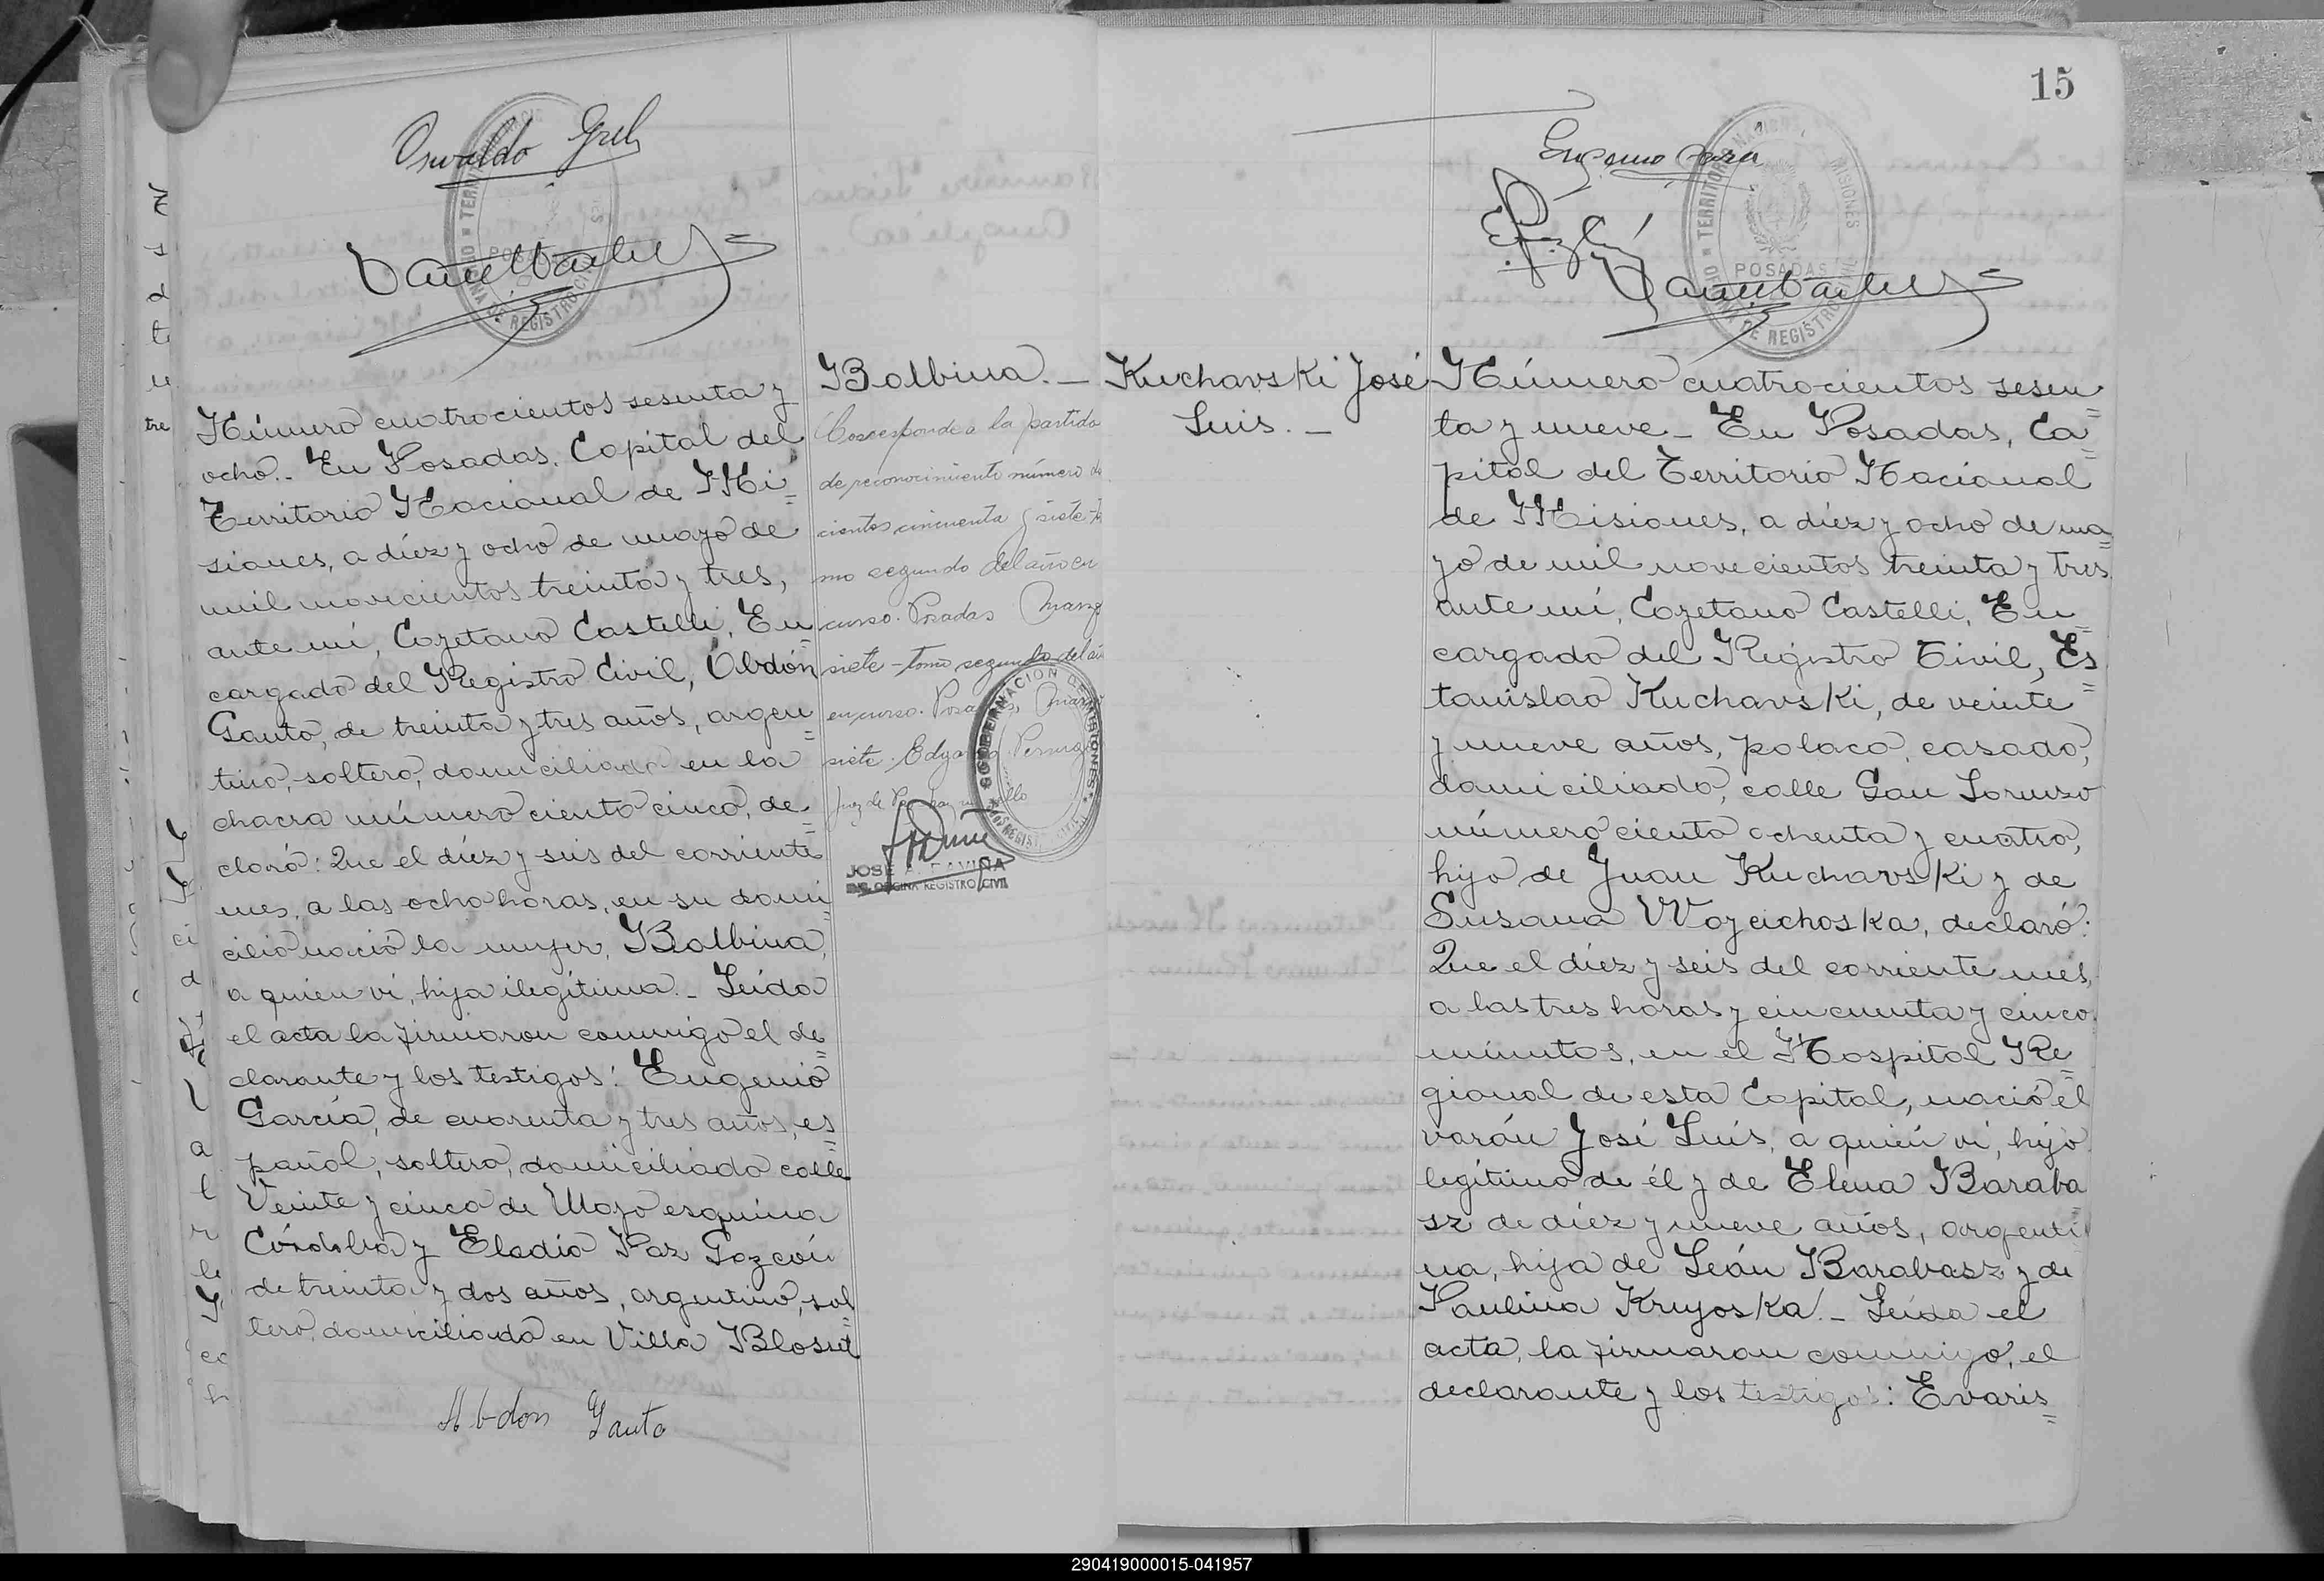 Osvaldo
Número cuatrocientos sesenta y
ocho.- En Posadas, Capital del
Territorio Nacional de Mi=
siones, a diez y ocho de mayo de
mil novecientos treinta y tres,
ante mí, Cayetano Castelli, En
cargado del Registro Civil, Abdón
Gauto, de treinta y tres años, argen=
tino, soltero, domiciliado en la
chacra número ciento cinco, de=
claró: Que el díez y seis del corriente
mes, a las ocho horas, en su domi=
cilio nació la mujer, Balbina,
a quien ví, hija ilegítima.- Leída
el acta la firmaron conmigo el de=
clarante y los testigos: Eugenio
García, de cuarenta y tres años, es=
pañol, soltero, domiciliado calle
Veinte y cinco de Mayo esquina
Córdoba y Eladio Paz
de treinta y dos años, argentino, sol=
tero, domiciliado en Villa Blosset
Abdon Gauto
Balbina.-
Corresponde a la partida
de reconocimiento número
cientos cincuenta y siete-
mo segundo del año en
curso. Posadas Marzo
siete - tomo segundo del
en curso.
siete.
GOBERNACION DE MISIONES
JOSE A.
ENC. OFICINA REGISTRO CIVIL
15
Eugenio
TERRITORIO NACIONAL MISIONES
POSADAS
OFICINA DE REGISTRO CIVIL
Kuchavski José
Luis.-
Número cuatrocientos sesen=
ta y nueve.- En Posadas, Ca=
pital del Territorio Nacional
de Misiones, a díez y ocho de ma=
yo de mil novecientos treinta y tres
ante mí, Cayetano Castelli, En=
cargado del Registro Civil, Es=
tanislao Kuchavski, de veinte
y nueve años, polaco, casado,
domiciliado, calle San Lorenzo
número ciento ochenta y cuatro,
hijo de Juan Kuchavski y de
Susana Wozcichoska, declaró:
Que el díez y seis del corriente mes,
a las tres horas y cincuenta y cinco
minutos, en el Hospital Re=
gional de esta Capital, nació el
varón José Luís, a quién ví, hijo
legítimo de él y de Elena Baraba
sz de díez y nueve años, argenti=
na, hija de León Barabasz y de
Paulina Kruyoska.- Leída el
acta, la firmaron conmigo, el
declarante y los testigos: Evaris=
290419000015-041957